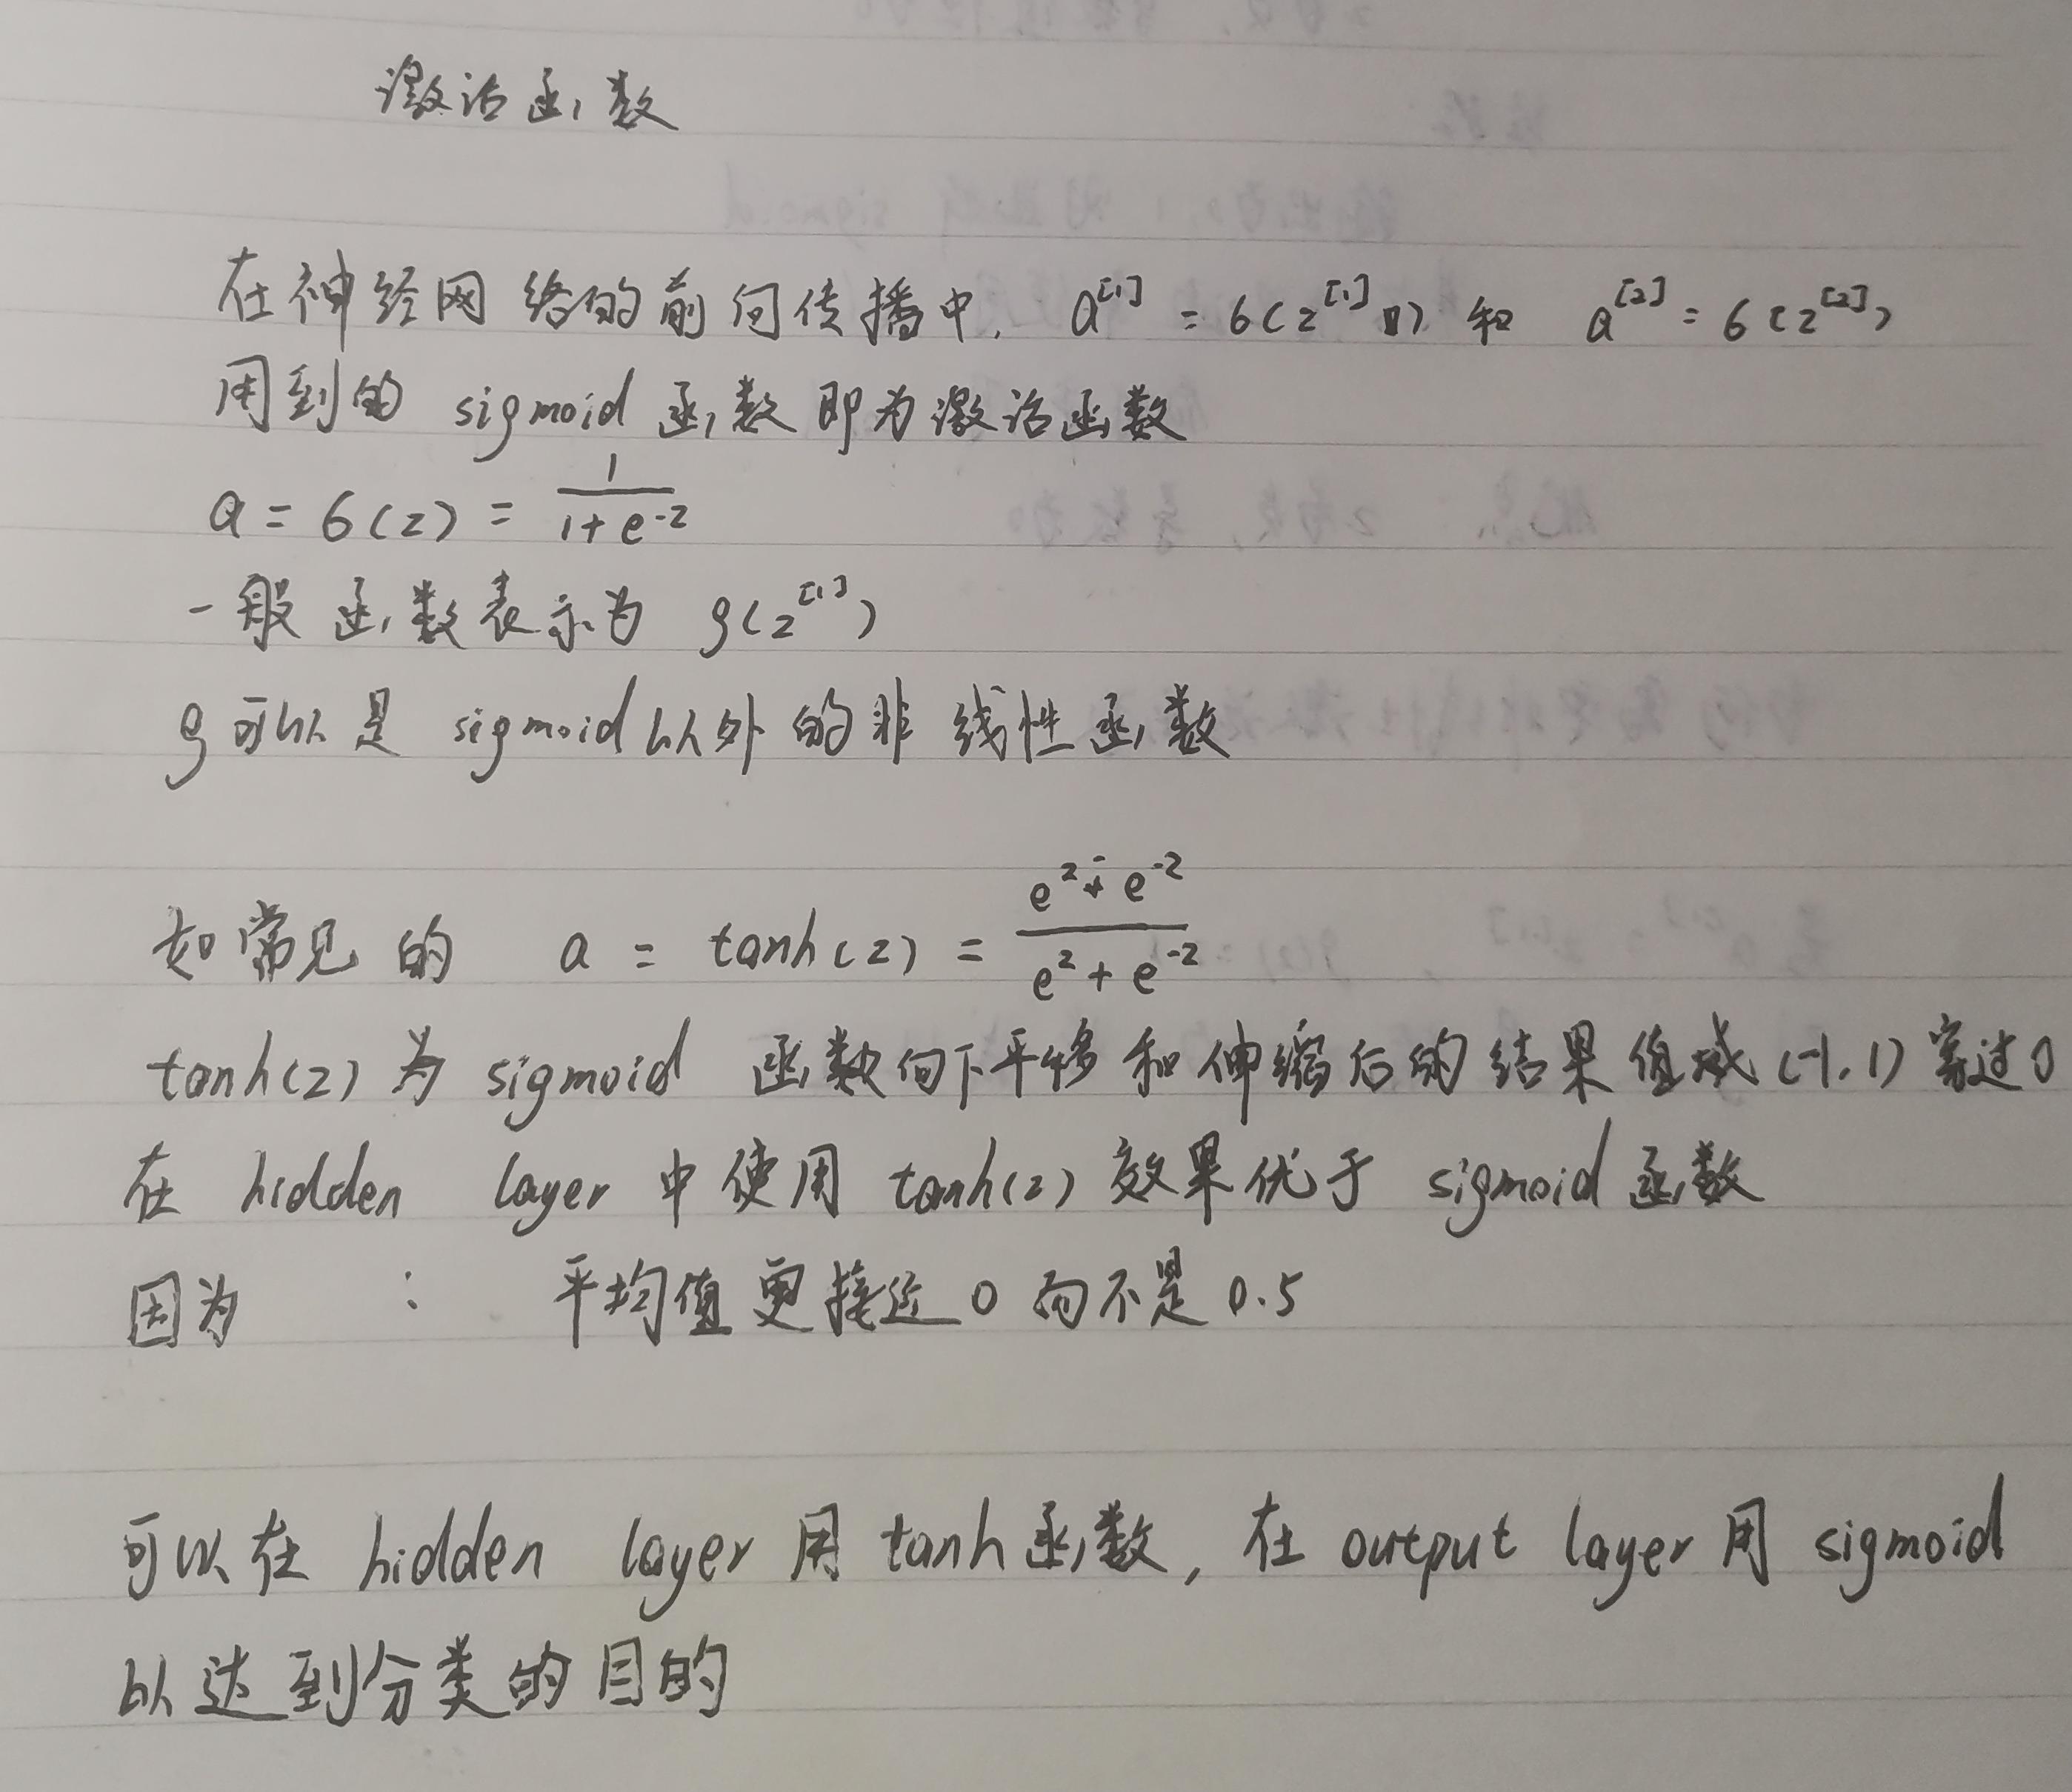 激活函数
在神经网络的前向传播中, a^[1] = σ(z^[1]) 和 a^[2] = σ(z^[2])
用到的 sigmoid 函数即为激活函数
a = σ(z) = 1/(1+e^-z)
一般函数表示为 g(z^[1])
g可以是 sigmoid以外的非线性函数
如常见的 a = tanh(z) = (e^z - e^-z)/(e^z + e^-z)
tanh(z) 为 sigmoid 函数向下平移和伸缩后的结果 值域(-1,1) 穿过0
在 hidden layer 中使用 tanh(z) 效果优于 sigmoid 函数
因为 : 平均值更接近0而不是0.5
可以在 hidden layer 用 tanh函数, 在 output layer 用 sigmoid
以达到分类的目的